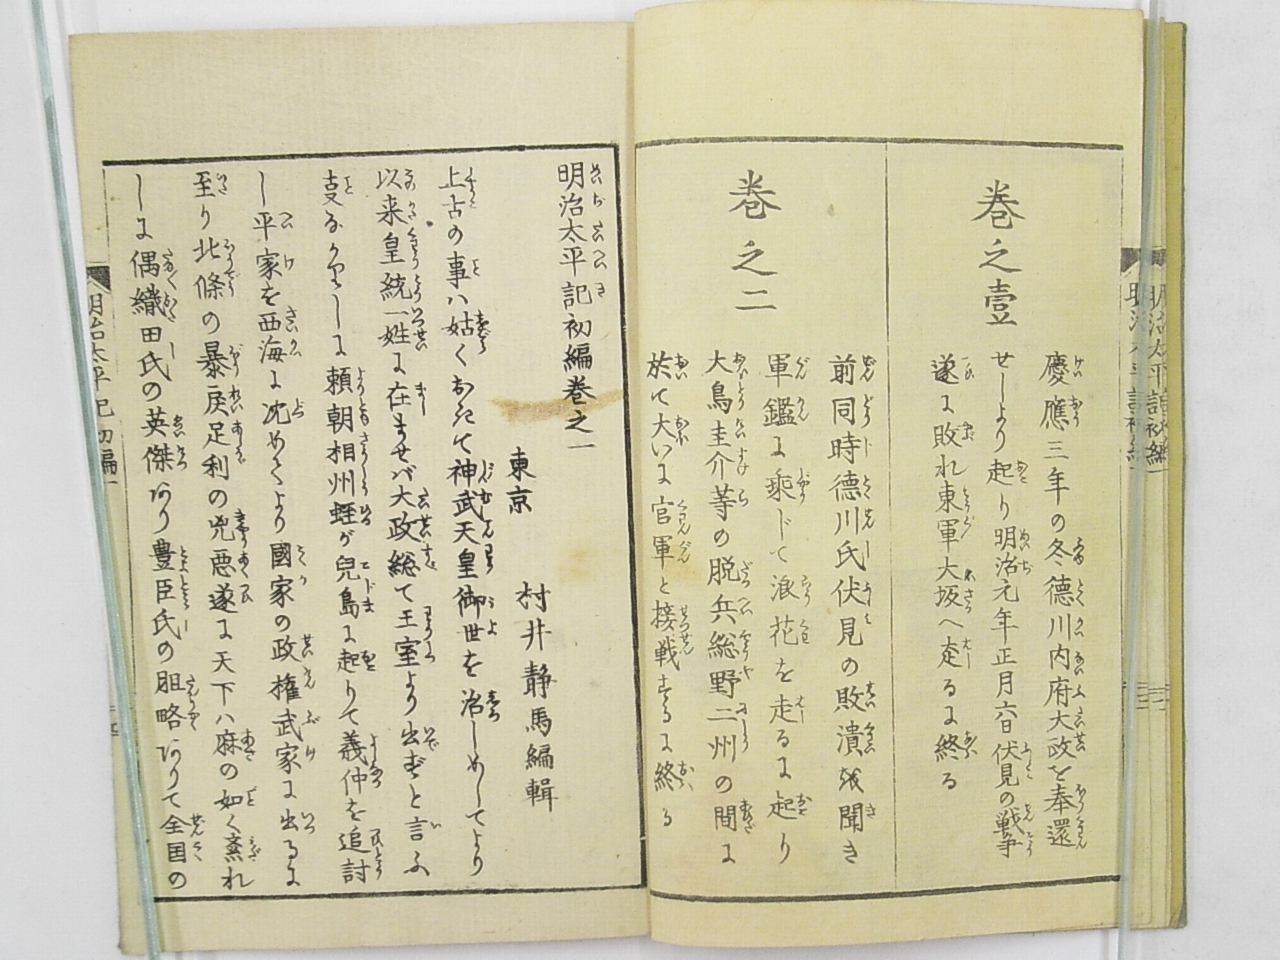 巻之壹
慶應三年の冬德川内府大政を奉還
せしより起り明治元年正月六日伏見の戦争
遂に敗れ東軍大坂へ走るに終る
巻之二
前同時德川氏伏見の敗潰を聞き
軍鑑に乘じて浪花を走るに起り
大鳥圭介等の脱兵総野二州の間に
於て大いに官軍と接戦するに終る
明治太平記初編巻之一
東京 村井静馬編輯
上古の事ハ姑くおきて神武天皇御世を治しめしてより
以来皇統一姓に在ませバ大政総て王室より出ずと言ふ
支るかりしに頼朝相州蛭が兒島に起りて義仲を追討
し平家を西海に沈めしより國家の政権武家に出るに
至り北條の暴戻足利の兇悪遂に天下ハ麻の如く紊れ
しに偶織田氏の英傑あり豊臣氏の胆略ありて全国の
明治太平記初編